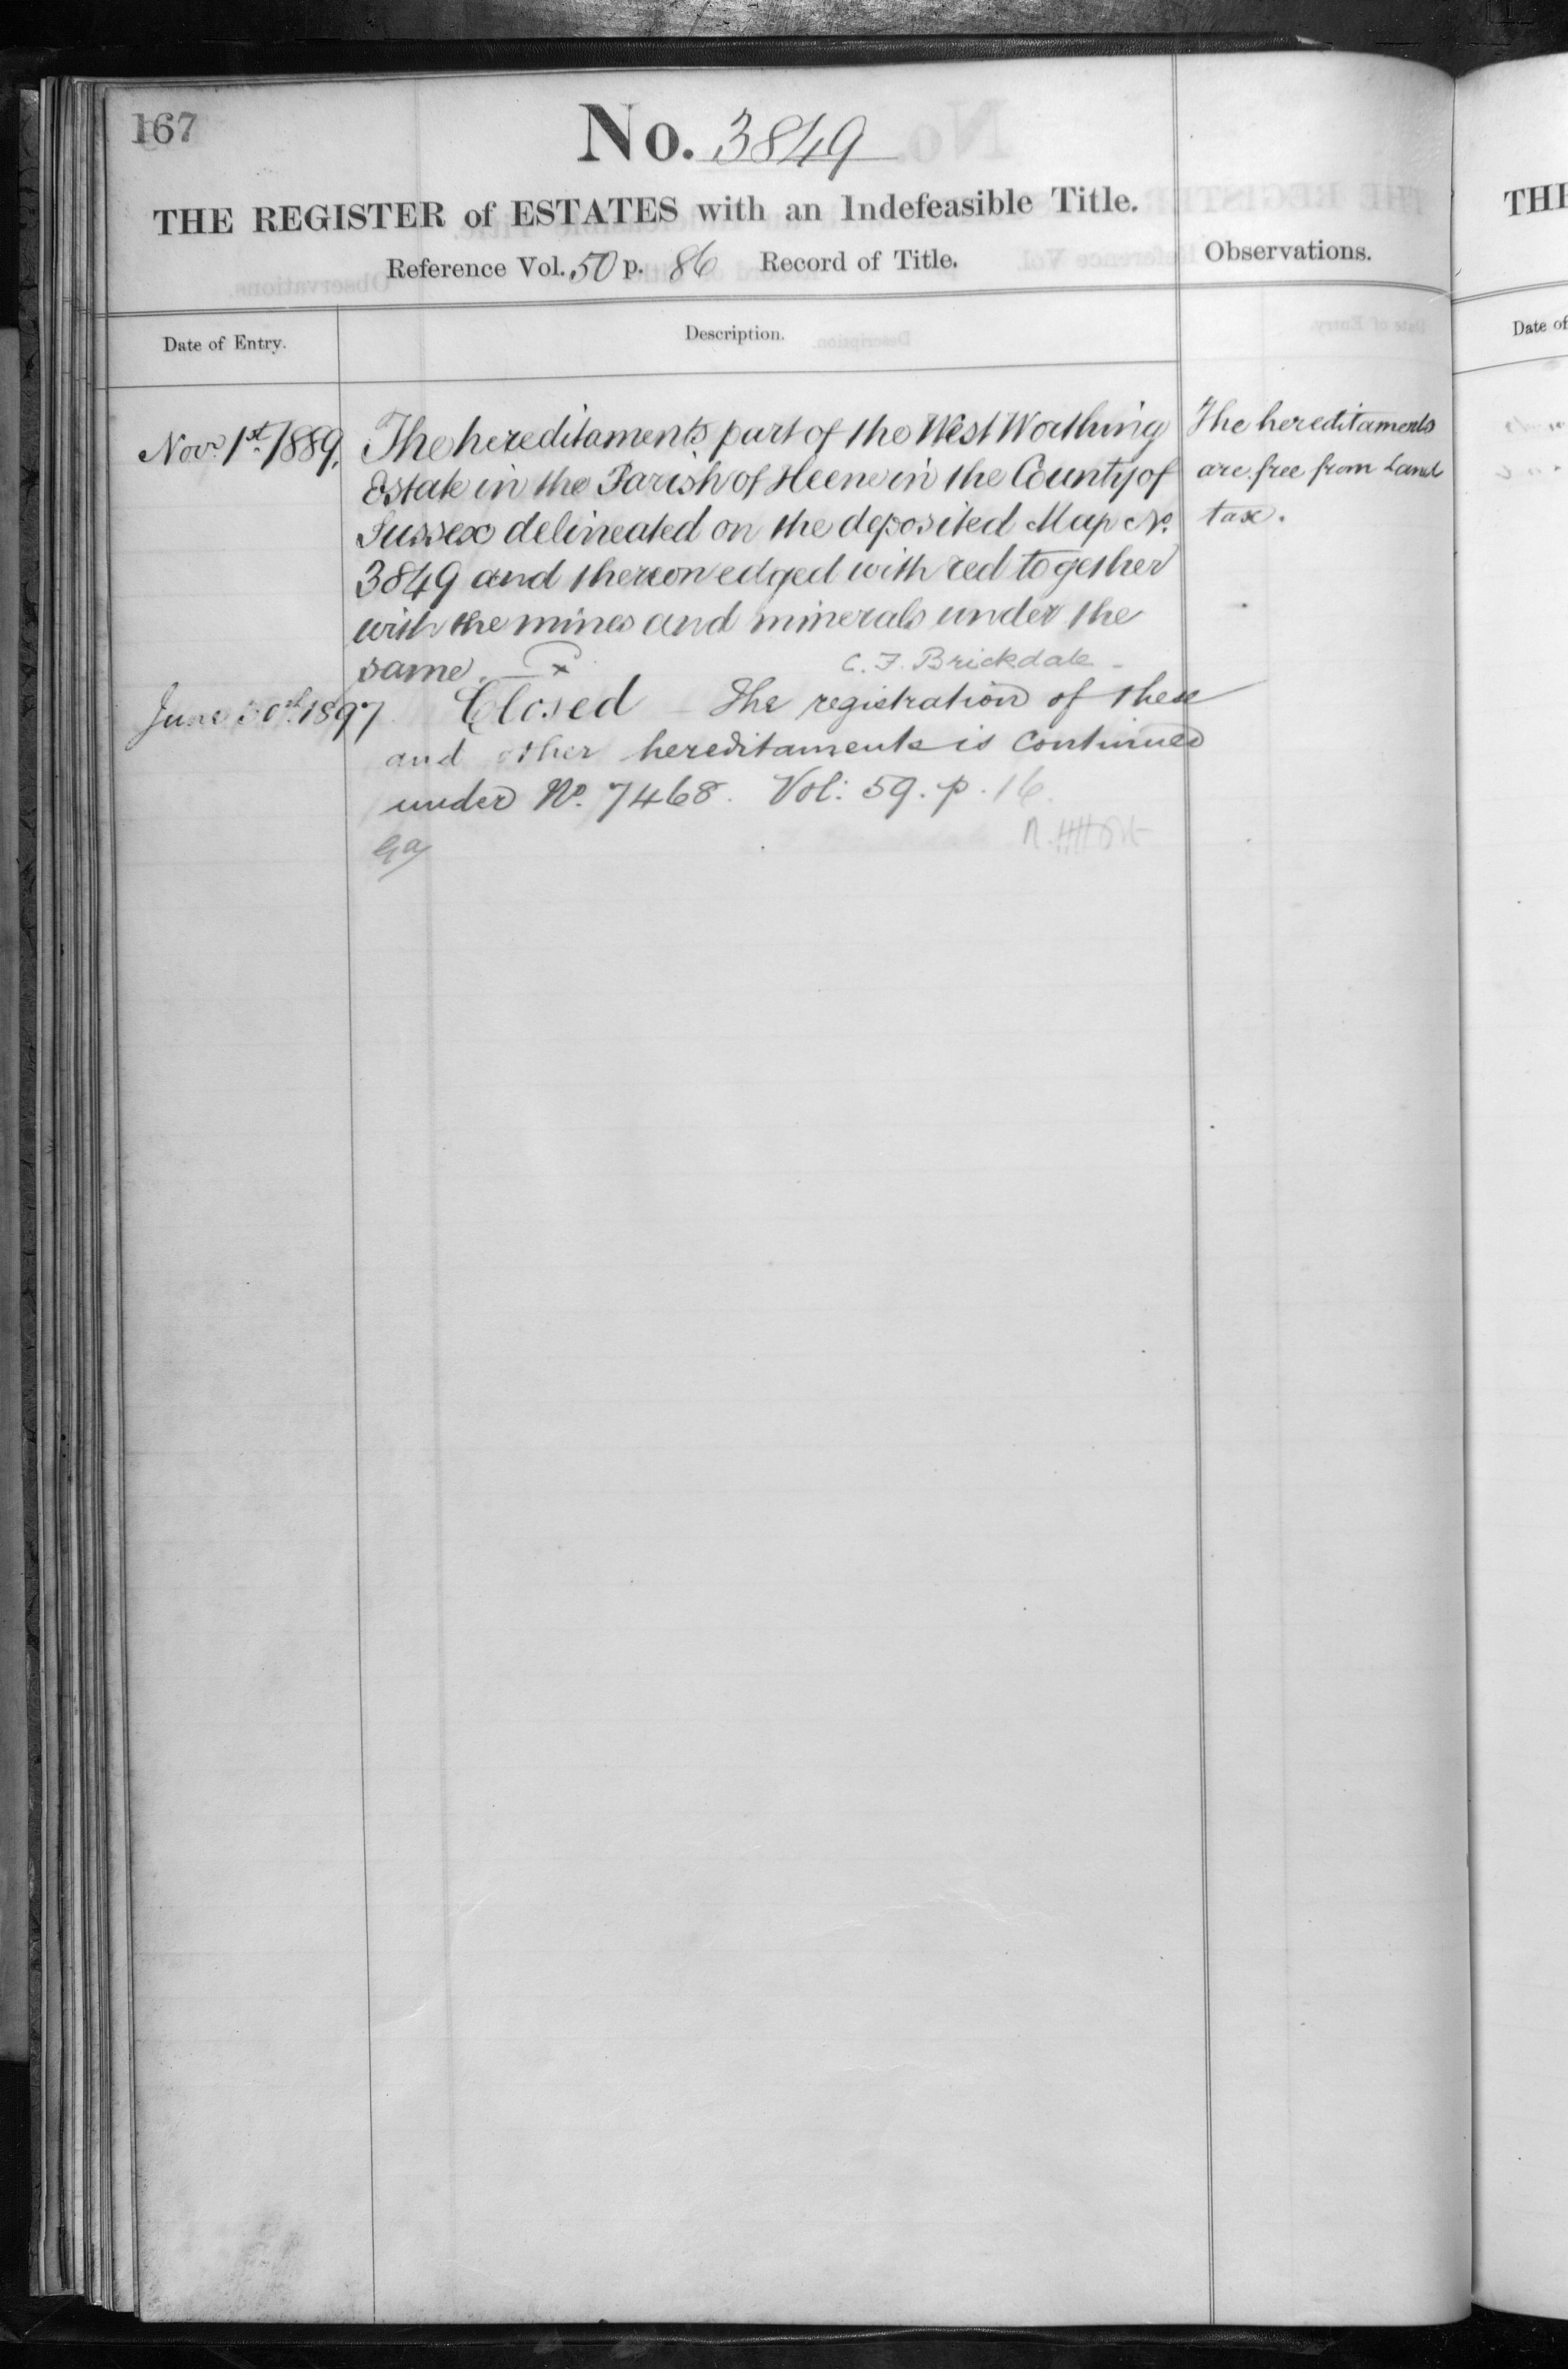 167
No. 3849
THE REGISTER of ESTATES with an Indefeasible Title.
Reference Vol. 50 p. 86 Record of Title.
Observations.
Date of Entry.
Description.
Novr. 1st. 1889.
The hereditaments part of the West Worthing
Estate in the Parish of Heene in the County of
Sussex delineated on the deposited Map No.
3849 and thereon edged with red together
with the mines and minerals under the
same.
C. F. Brickdale
The hereditaments
are free from Land
tax.
June 30th. 1897
Closed – The registration of these
and other hereditaments is continued
under No. 7468. Vol: 59. p. 16.
THE
Date of